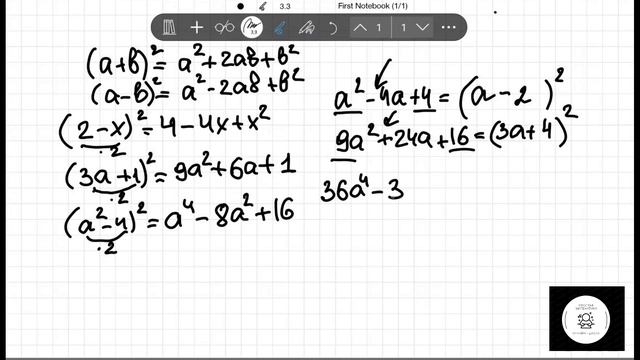 3.3 First Notebook (1/1)
3.3 1 1
(a+b)² = a²+2ab+b²
(a-b)² = a²-2ab+b²
(2-x)² = 4-4x+x²
·2
(3a+1)² = 9a²+6a+1
·2
(a²-4)² = a⁴-8a²+16
·2
a²-4a+4 = (a-2)²
9a²+24a+16 = (3a+4)²
36a⁴-3